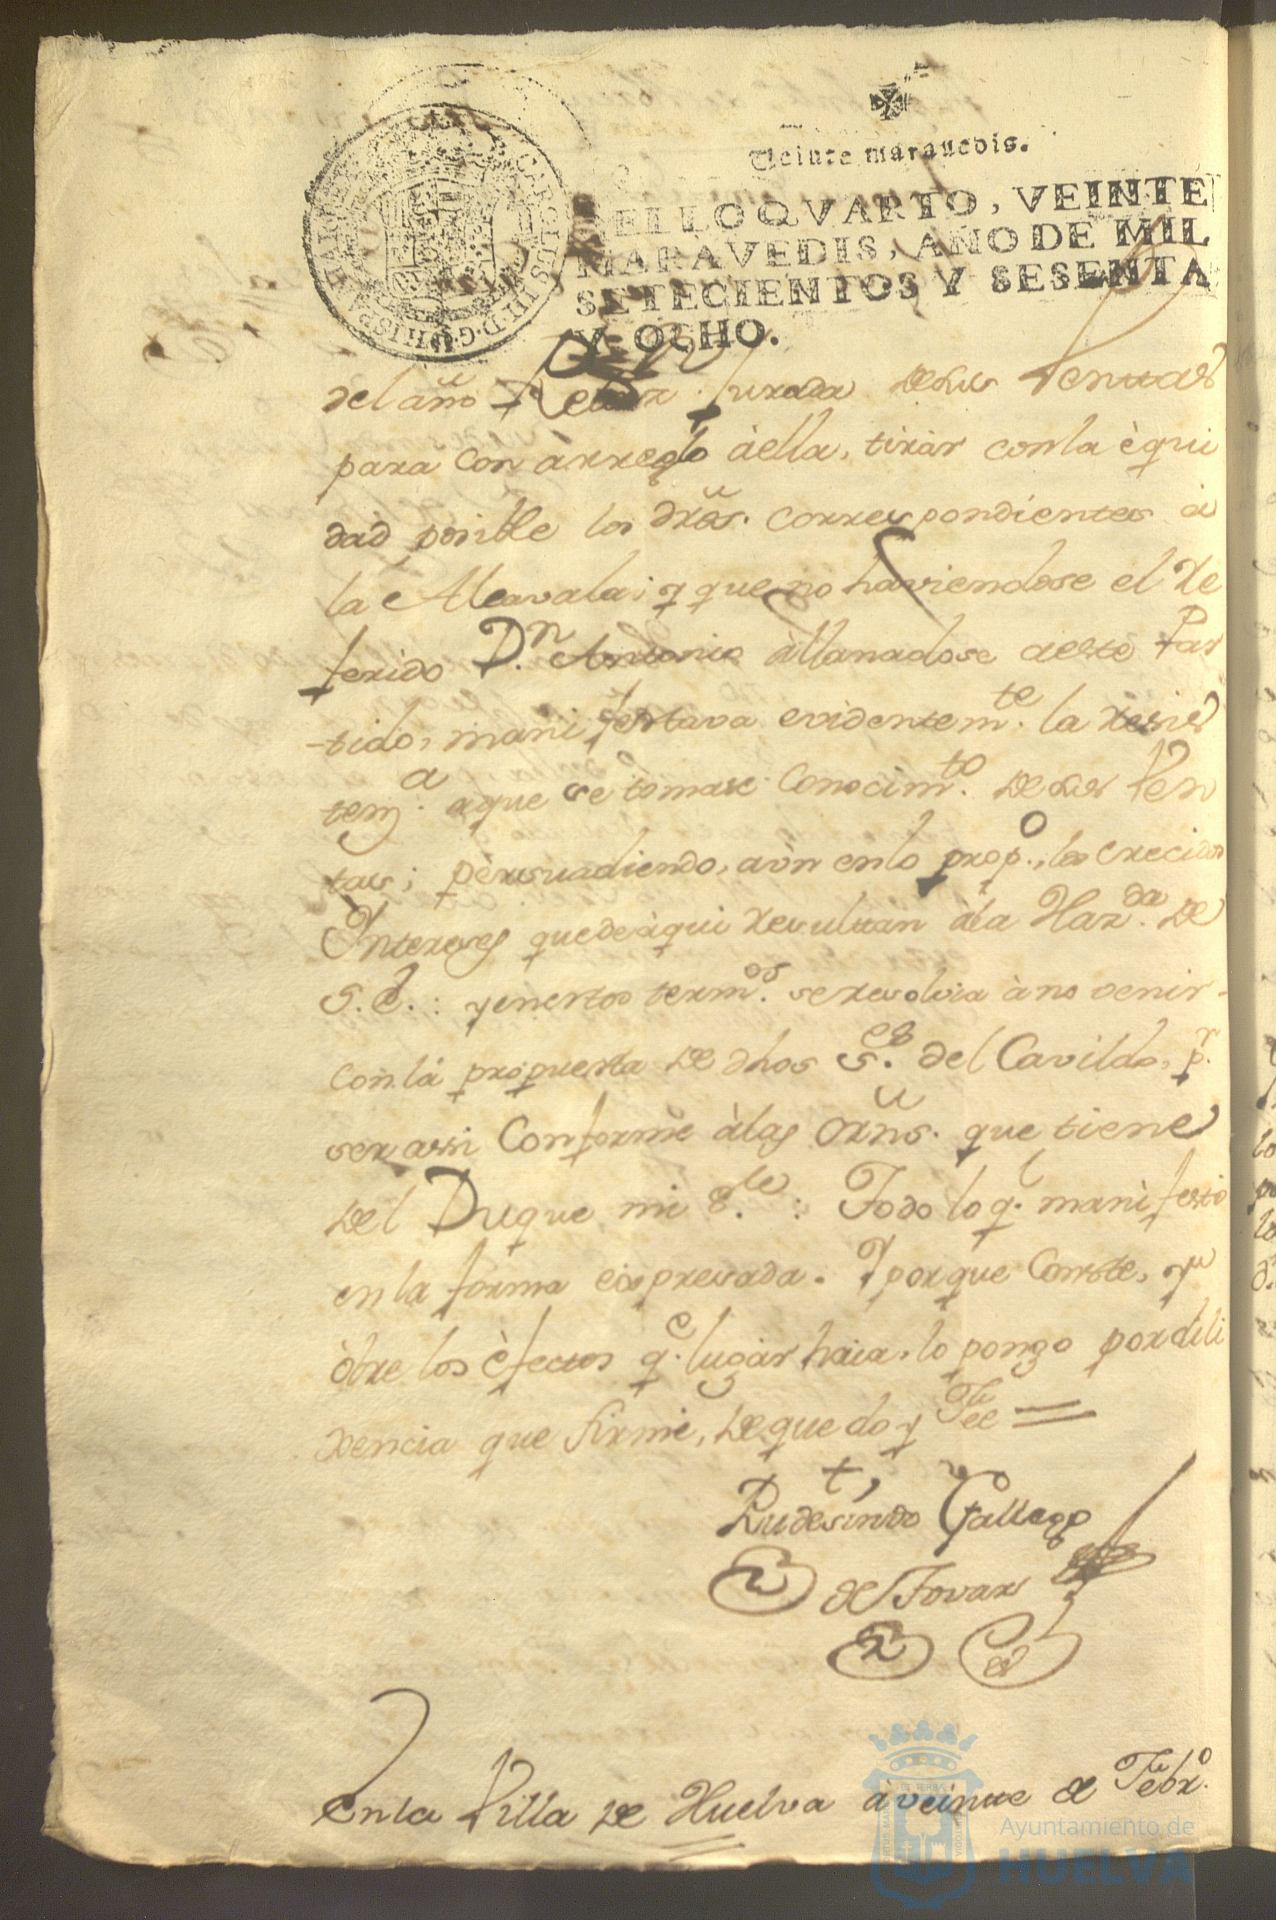 Veinte maravedis.
SELLO QVARTO, VEINTE
MARAVEDIS, AÑO DE MIL
SETECIENTOS Y SESENTA
Y OCHO.
CAROLUS III D. G. HISP
del año Relaz.n Jurada de sus Ventas
para con àrreglo àella, tiràr con la èqui
dad posible los dr̃os. correspondientes à
la Alcavala; y que no haviendose el Re
ferido D.n Antonio àllanadose aeste Par
tido, manifestava evidentem.te la resis
tem.a aque se tomase Conocim.to de sus Ven
tas; pèrsuadiendo, aùn en lo prop.o, los crecidos
Intereses quedeàqui resultan àla Haz.da de
S. E.: y enestos term.os se resolvia à no venir
con là propuesta de dhos S.es del Cavildo, p.r
ser assi Conforme àlas Orñs. que tiene
del Duque mi S.re: Todo lo q.e manifesto
en la forma expresada. Y porque Conste, y
òbre los èfectos q.e lugàr haia, lo pongo por dili
xencia que firmè, de que doy Fee =
Rudesindo Gallego
de Tovar
En la Villa de Huelva à veinte de Febr.o
Ayuntamiento de
HUELVA